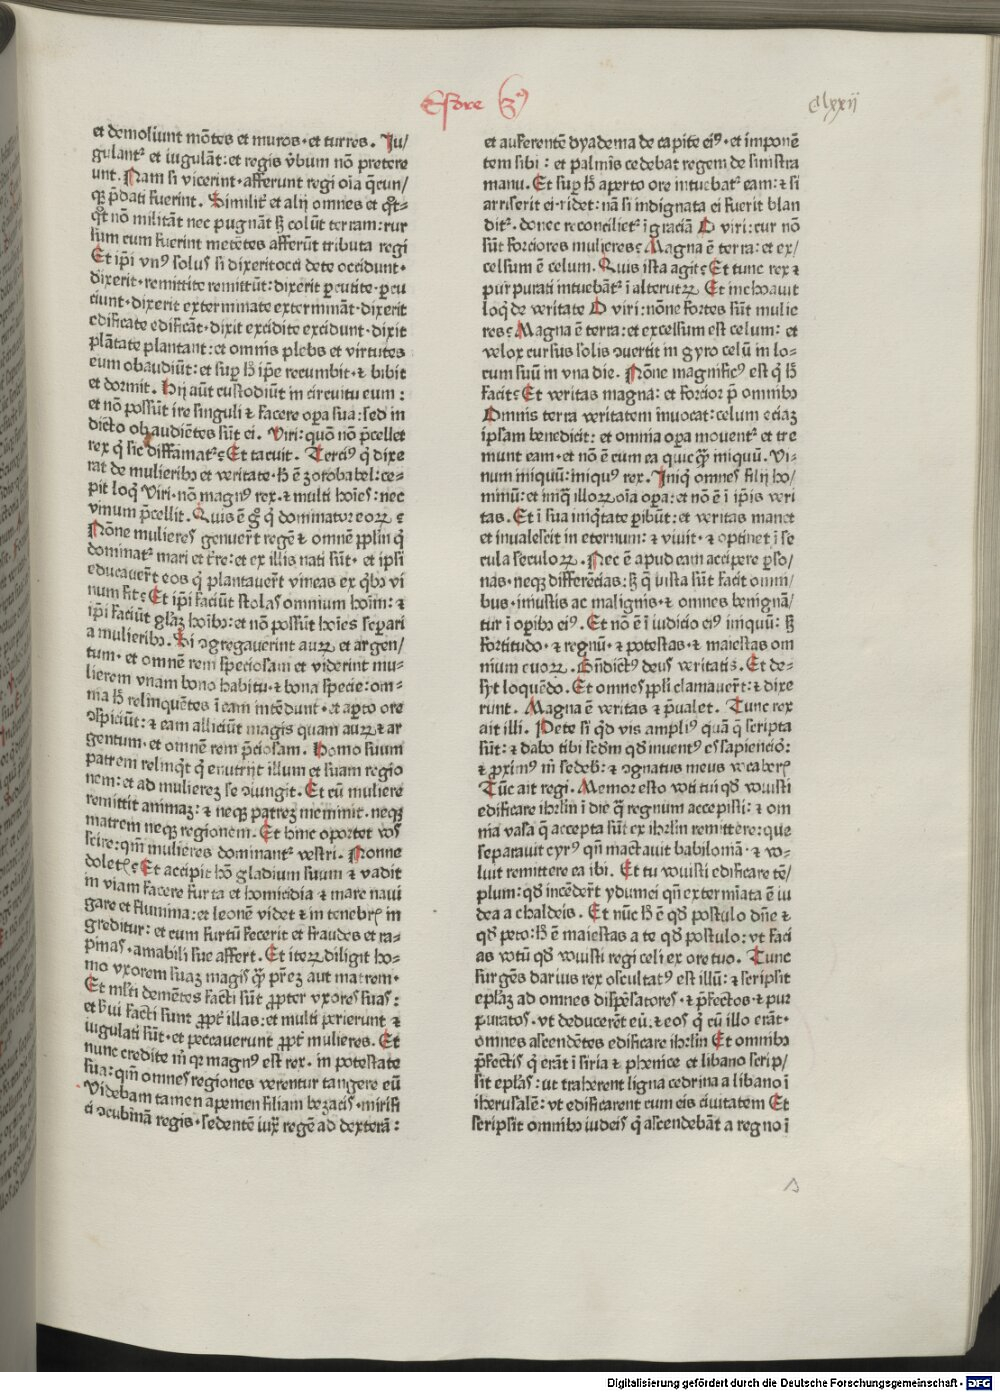 Esdre 3⁹
clxxij
et demoliunt mōtes et muros·et turres. Iu/
gulantᷣ et iugulāt:et regis v̄bum nō pretere
unt. Nam si vicerint·afferunt regi oīa q̄cun/
qꝫ p̄dati fuerint. Similit̄ et alij omnes et q̄t⸗
q̄t nō militāt nec pugnāt sꝫ colūt terram:rur
sum cum fuerint metētes afferūt tributa regi
Et ip̄i vn⁹ solus si dixerit occidete occidunt·
dixerit·remittite remittūt:dixerit ꝑcutite·ꝑcu
tiunt·dixerit exterminate extermināt·dixerit
edificate edificāt·dixit excidite excidunt·dixit
plātate plantant:et omnis plebs et virtutes
eum obaudiūt:et suꝑ h̄ ip̄e recumbit·⁊ bibit
et dormit. Hij aūt custodiūt in circuitu eum:
et nō possūt ire singuli ⁊ facere oꝑa sua:sed in
dicto obaudiētes sūt ei. Viri:quō nō p̄cellet
rex q̇ sic diffamatᷣ? Et tacuit. Terci⁹ q̇ dixe
rat de mulieribꝫ et veritate·h̄ ē zorobabel:ce⸗
pit loq̇ Viri·nō magn⁹ rex·⁊ multi hoīes:nec
vinum p̄cellit. Quis ē ḡ q̇ dominator eoꝝ ?
Nōne mulieres genuer̄t regē ⁊ omnē pp̄lm q̇
dominatᷣ mari et t̄re:et ex illis nati sūt· et ip̄si
educauer̄t eos q̇ plantauer̄t vineas ex q̇bꝫ vi
num fit? Et ip̄i faciūt stolas omnium hoīm: ⁊
ip̄i faciūt gl̄aꝫ hoībꝫ:et nō possūt hoīes seꝑari
a mulieribꝫ. Si ꝯgregauerint auꝝ et argen/
tum· et omnē rem speciosam et viderint mu⸗
lierem vnam bono habitu·⁊ bona specie:om⸗
nia h̄ relinquētes ī eam intēdunt·et aꝑto ore
ꝯspiciūt: ⁊ eam alliciūt magis quam auꝝ ⁊ ar
gentum·et omnē rem p̄ciosam. Homo suum
patrem relinq̇t q̇ enutrijt illum et suam regio
nem:et ad mulierez se ꝯiungit. Et cū muliere
remittit animaz: ⁊ neqꝫ patrez meminit·neqꝫ
matrem neqꝫ regionem. Et hinc oportet vos
scire:qm̄ mulieres dominantᷣ vestri. Nonne
doletis? Et accipit hō gladium suum ⁊ vadit
in viam facere furta et homicidia ⁊ mare naui
gare et flumina:et leonē videt ⁊ in tenebris in
greditur: et cum furtū fecerit et fraudes et ra⸗
pinas·amabili sue affert. Et iteꝝ diligit ho⸗
mo vxorem suaz magis q̄ꝫ p̄rez aut matrem·
Et ml̄ti demētes facti sūt ꝓpter vxores suas:
et s̄ui facti sunt ꝓpt̄ illas:et multi perierunt ⁊
iugulati sūt·et peccauerunt ꝓpt̄ mulieres. Et
nunc credite m̄ qꝫ magn⁹ est rex· in potestate
sua:qm̄ omnes regiones verentur tangere eū
Videbam tamen apemen filiam bezacis·mirifi
ci ꝯcubinā regis·sedentē iux̄ regē ad dexterā:
et auferentē dyadema de capite ei⁹·et imponē
tem sibi: et palmis cedebat regem de sinistra
manu. Et suꝑ h̄ aperto ore intuebatᷣ eam: ⁊ si
arriserit ei·ridet: nā si indignata ei fuerit blan
ditᷣ. donec reconcilietᷣ ī graciā O viri:cur nō
sūt forciores mulieres? Magna ē terra: et ex/
celsum ē celum. Quis ista agit? Et tunc rex ⁊
purpurati intuebātᷣ ī alterutꝝ Et inchoauit
loq̇ de veritate O viri:nōne fortes sūt mulie
res? Magna ē terra:et excelsum est celum: et
velox cursus solis ꝯuertit in gyro celū in lo⸗
cum suū in vna die. Nōne magnific⁹ est q̇ h̄
facit? Et veritas magna: et forcior p̄ omnibꝫ
Omnis terra veritatem inuocat:celum etiaꝫ
ipsam benedicit: et omnia oꝑa mouentᷣ et tre
munt eam·et nō ē cum ea quicq̄ꝫ iniquū. Vi⸗
num iniquū:iniqu⁹ rex. Iniq̇ omnes filij ho/
minū: et iniq̇ illoꝝ oīa oꝑa: et nō ē ī ip̄is veri
tas. Et ī sua iniq̇tate ꝑibūt: et veritas manet
et inualescit in eternum: ⁊ viuit· ⁊ optinet ī se
cula seculoꝝ. Nec ē apud eam accipere ꝑso/
nas·neqꝫ differēcias:sꝫ q̄ iusta sūt facit omni/
bus·iniustis ac malignis·⁊ omnes benignā/
tur ī oꝑibꝫ ei⁹. Et nō ē ī iudicio ei⁹ iniquū: sꝫ
fortitudo· ⁊ regnū· ⁊ potestas· ⁊ maiestas om
nium euoꝝ. Bn̄dict⁹ deus veritatis. Et de⸗
sijt loquēdo. Et omnes pp̄li clamauer̄t: ⁊ dixe
runt. Magna ē veritas ⁊ p̄ualet. Tunc rex
ait illi. Pete si q̇d vis ampli⁹ quā q̄ scripta
sūt: ⁊ dabo tibi sed̄m qd̄ inuent⁹ es sapiencior:
⁊ ꝓxim⁹ m̄ sedeb: ⁊ ꝯgnatus meus vocaberis
Tūc ait regi. Memor esto voti tui qd̄ vouisti
edificare ihrl̄m ī die q̄ regnum accepisti: ⁊ om
nia vasa q̄ accepta sūt ex ihrl̄m remittere:que
separauit cyr⁹ qn̄ mactauit babiloniā· ⁊ vo⸗
luit remittere ea ibi. Et tu vouisti edificare tē/
plum:qd̄ incēder̄t ydumei qn̄ exterm̄iata ē iu
dea a chaldeis. Et nūc h̄ ē qd̄ postulo dn̄e ⁊
qd̄ peto:h̄ ē maiestas a te qd̄ postulo: vt faci
as votū qd̄ vouisti regi celi ex ore tuo. Tunc
surgēs darius rex osculat⁹ est illū: ⁊ scripsit
ep̄laꝫ ad omnes dispēsatores·⁊ p̄fectos·⁊ pur
puratos·vt deducerēt eū·⁊ eos q̇ cū illo erāt·
omnes ascendētes edificare ihrl̄m Et omnibꝫ
p̄fectis q̇ erāt ī siria ⁊ phenice et libano scrip/
sit ep̄las: ut traherent ligna cedrina a libano ī
iherusalē: vt edificarent cum eis ciuitatem Et
scripsit omnibꝫ iudeis q̇ ascendebāt a regno ī
Digitalisierung gefördert durch die Deutsche Forschungsgemeinschaft - DFG